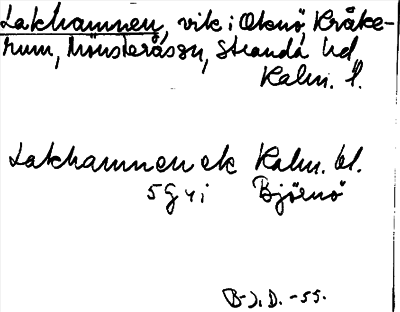 Lakhamnen, vik i Oknö, Kråke-
rum, Mönsterås sn, Stranda hd
Kalm. l.
Lakhamnen ek Kalm. bl.
5 G y i Björnö
B-J. D. -55.